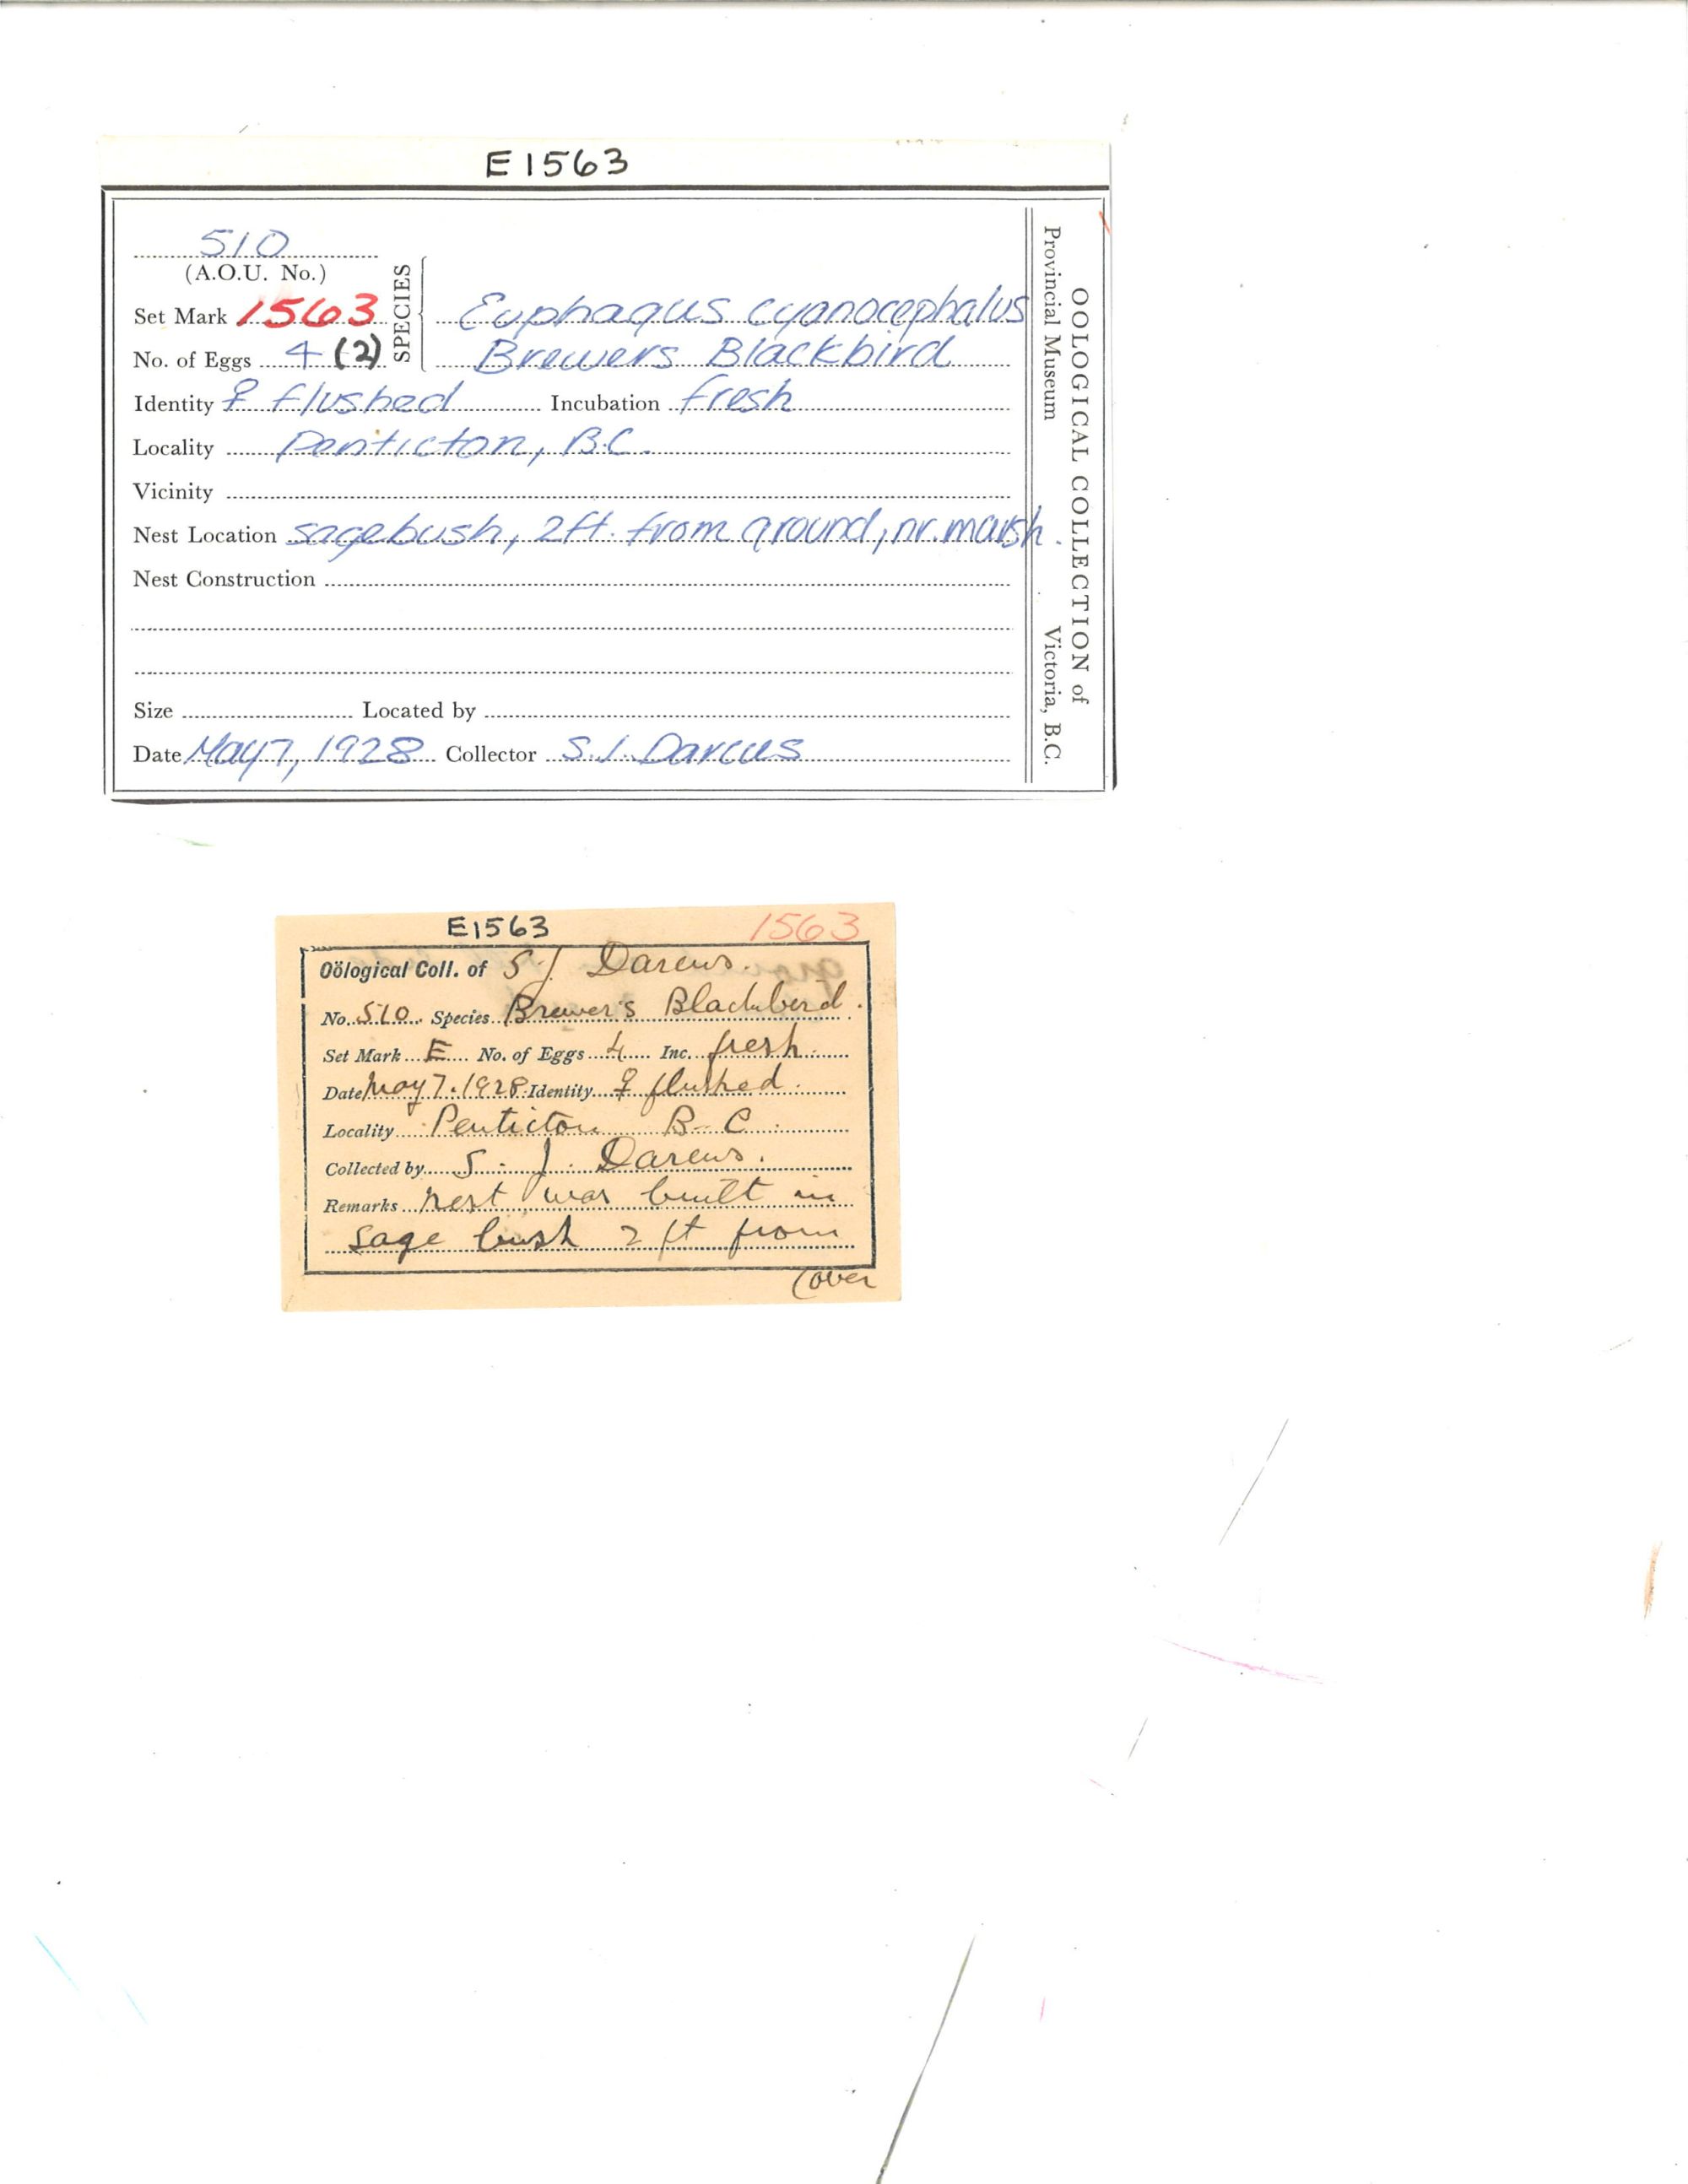 E1563
510
(A.O.U. No.)
Set Mark 1563
No. of Eggs 4 (2)
SPECIES
Euphagus cyanocephalus
Brewers Blackbird
Identity ♀ flushed Incubation fresh
Locality Penticton, B.C.
Vicinity
Nest Location sagebush, 2ft. from ground, nr. marsh.
Nest Construction
Size Located by
Date May 7, 1928 Collector S.J. Darcus
OOLOGICAL COLLECTION of
Provincial Museum Victoria, B.C.
E1563 1563
Oölogical Coll. of S J. Darcus.
No. 510. Species Brewer's Blackbird.
Set Mark E No. of Eggs 4 Inc. fresh
Date May 7. 1928 Identity ♀ flushed.
Locality Penticton B-C.
Collected by S. J. Darcus.
Remarks nest was built in
sage bush 2 ft from
(over